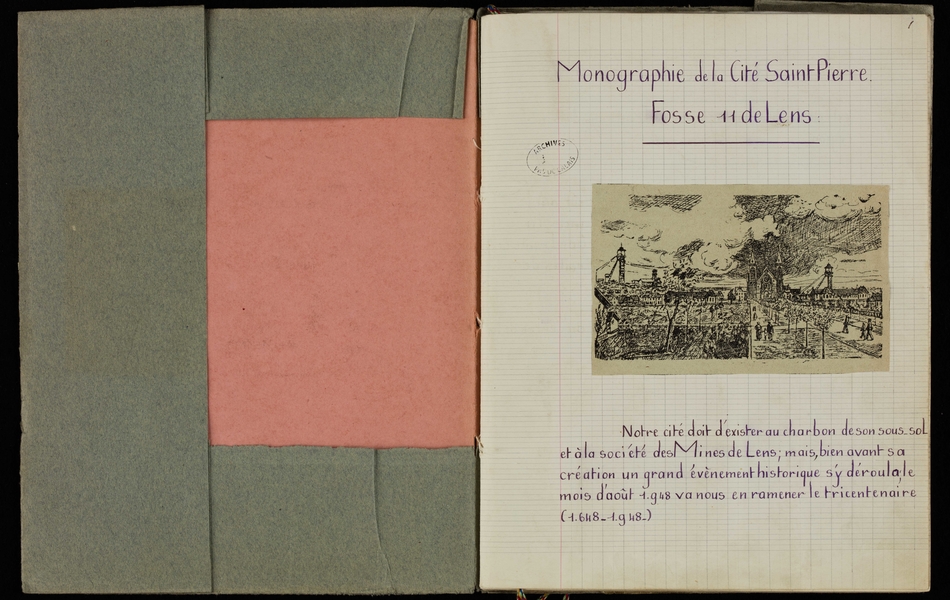 1
Monographie de la Cité Saint Pierre.
Fosse 11 de Lens.
ARCHIVES
PAS DE CALAIS
Notre cité doit d'exister au charbon de son sous-sol
et à la société des Mines de Lens ; mais, bien avant sa
création un grand évènement historique s'y déroula; le
mois d'août 1.948 va nous en ramener le tricentenaire
(1.648-1.948-)